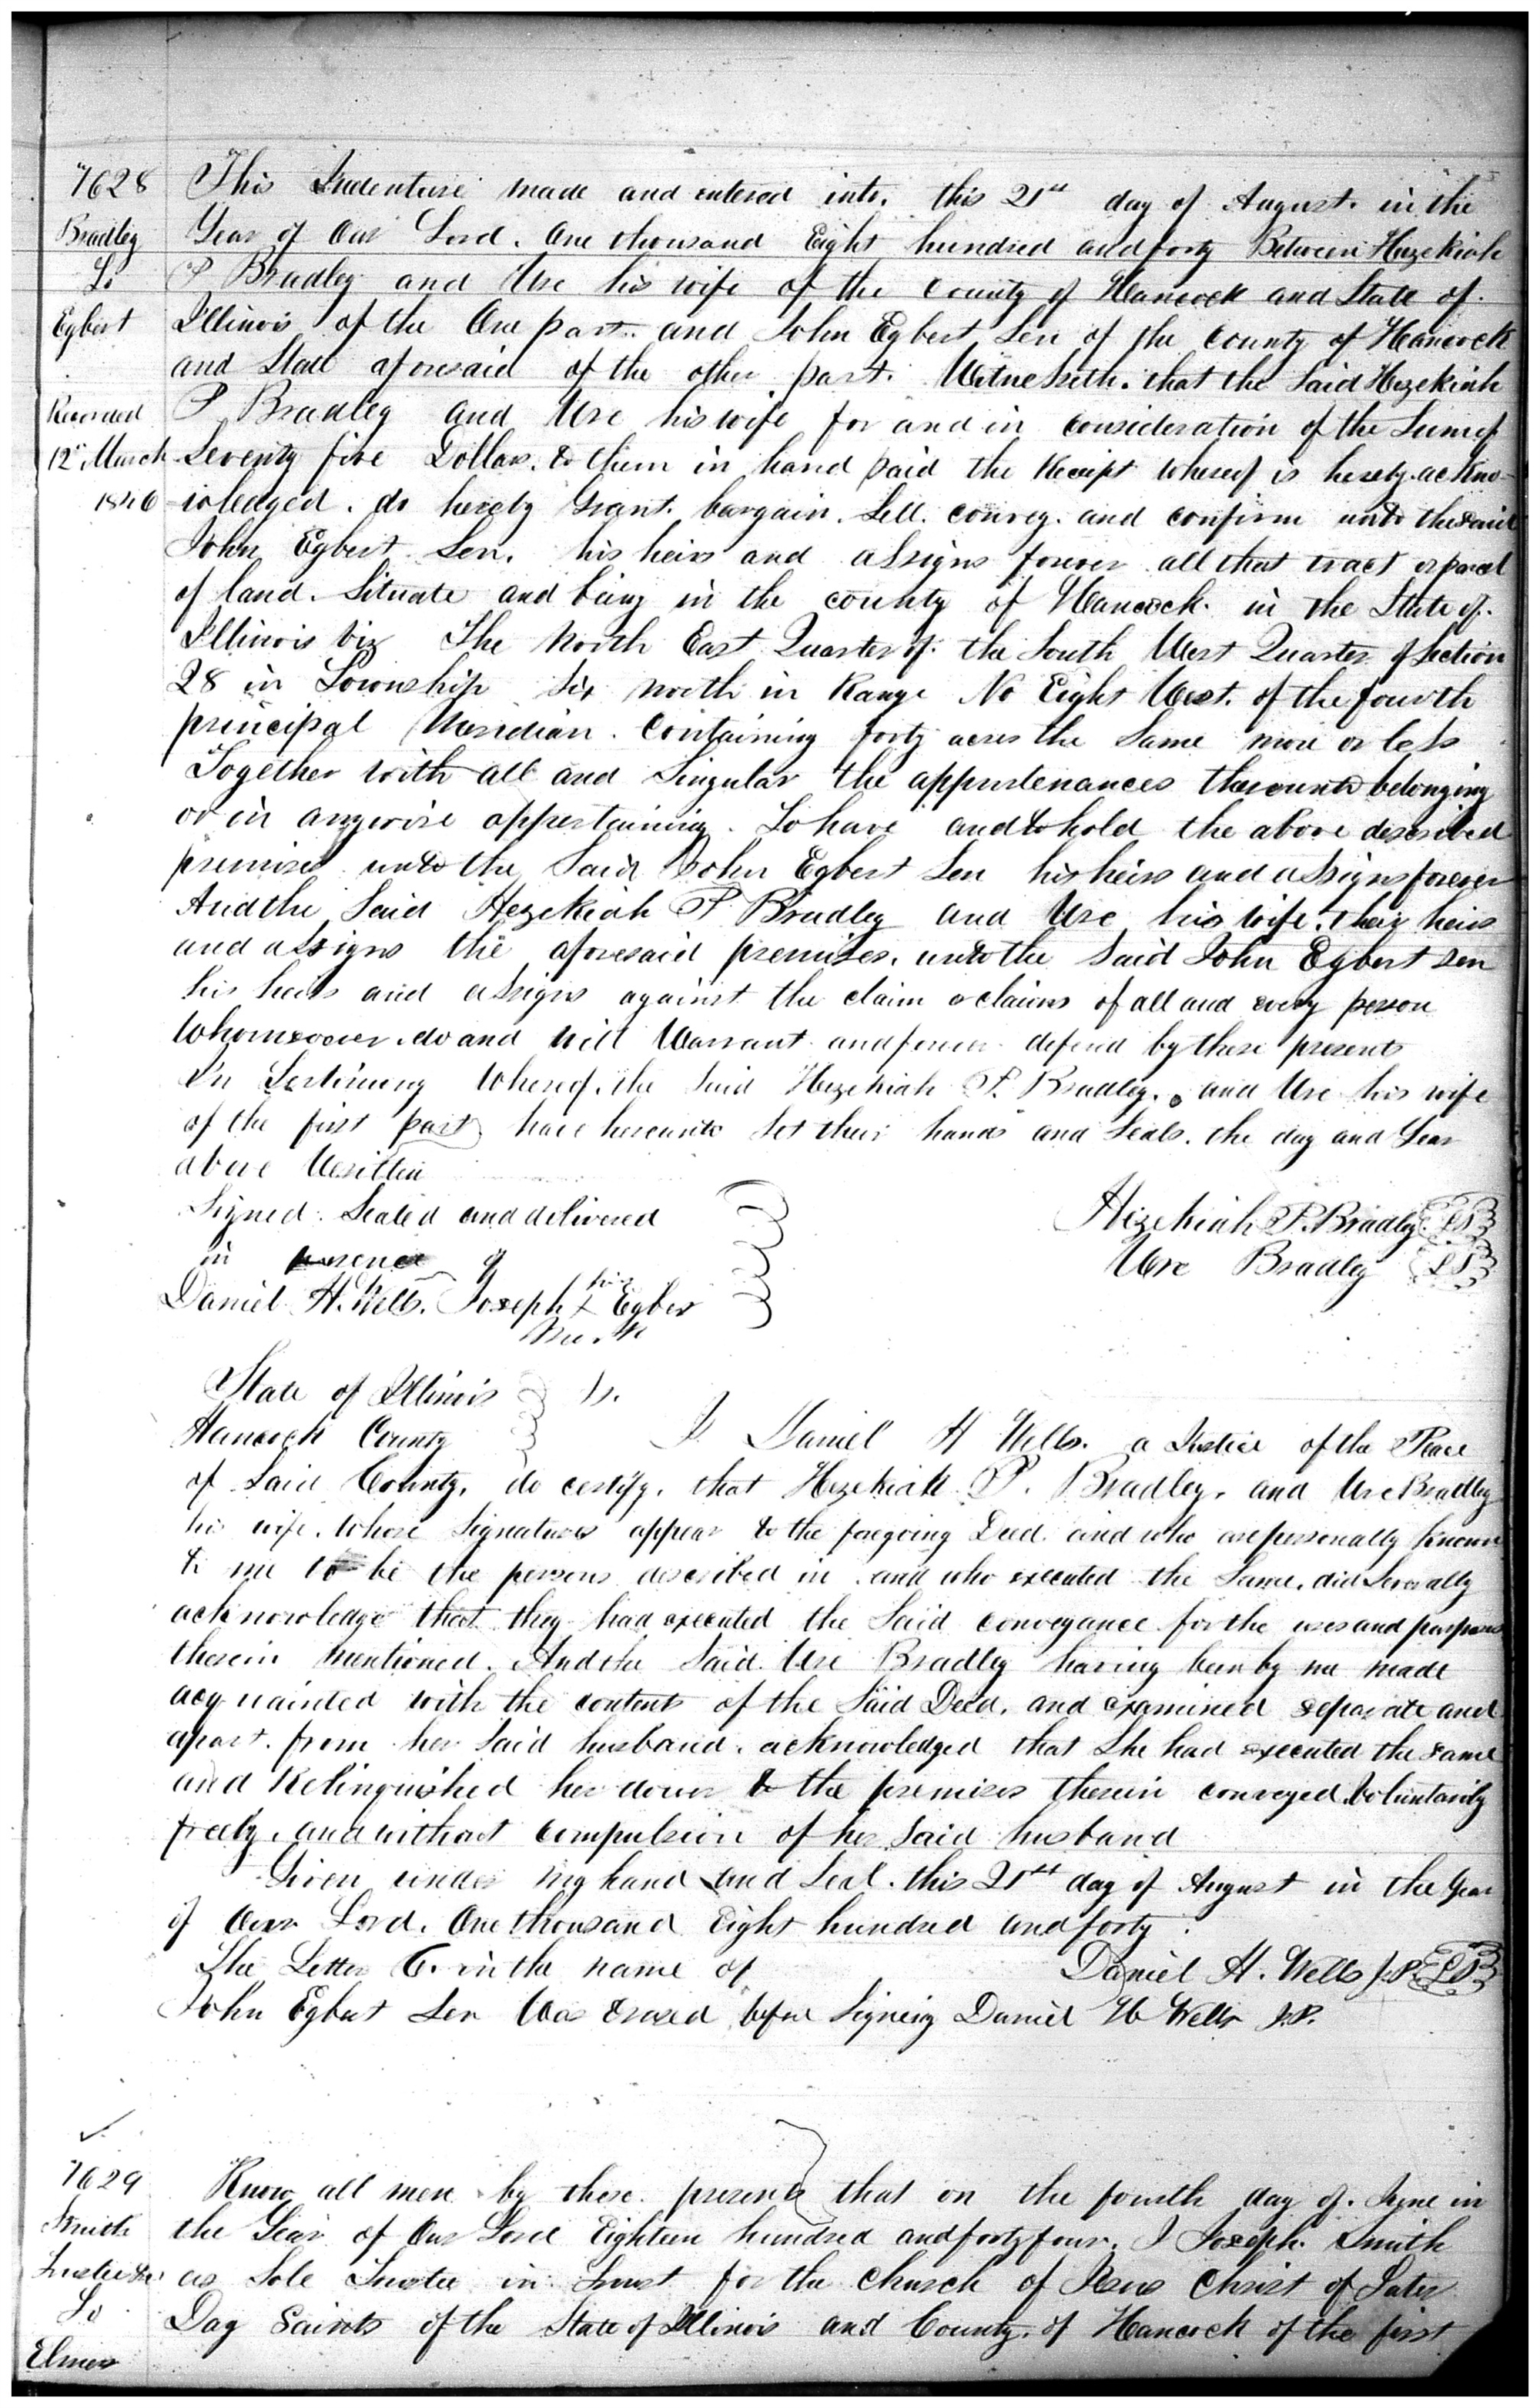 7628
Bradley
To
Egbert
Recorded
12" March
1846
This Indenture made and entered into. this 21st day of August. in the
Year of Our Lord. One thousand Eight hundred and forty Between Hezekiah
P Bradley and Ure his wife of the County of Hancock and State of.
Illinois of the One part. and John Egbert Sen of the County of Hancock
and State aforesaid of the other part. Witnesseth. that the Said Hezekiah
P Bradley and Ure his wife for and in consideration of the Sum of
Seventy five Dollars. to them in hand paid the Receipt Whereof is hereby ackno-
wledged. do hereby Grant. bargain. Sell. convey. and confirm unto the said
John Egbert Sen. his heirs and assigns forever all that tract or parcel
of land. Situate and being in the county of Hancock. in the State of.
Illinois viz The North East Quarter of. the South West Quarter of Section
28 in Township Six North in Range No Eight West. of the fourth
principal Meridian. Containing forty acres the Same more or less
Together with all and Singular the appurtenances thereunto belonging
or in anywise appertaining. To have and to hold the above described
premises unto the Said John Egbert Sen his heirs and assigns forever
And the Said Hezekiah P Bradley and Ure his wife. their heirs
and assigns the aforesaid premises. unto the Said John Egbert Sen
his heirs and assigns against the claim or claims of all and every person
Whomsoever. do and will Warrant and forever defend by these presents
In Testimony Whereof. the Said Hezekiah P. Bradley. and Ure his wife
of the first part have hereunto Set their hands and Seals. the day and Year
above Written
Signed. Sealed and delivered
in presence of
Daniel H. Wells. Joseph his X mark Egbert
Hezekiah P. Bradley LS
Ure Bradley LS
State of Illinois ss.
Hancock County
I Daniel H Wells. a Justice of the Peace
of Said County. do certify. that Hezekiah P. Bradley. and Ure Bradley
his wife. Whose Signatures appear to the foregoing Deed and who are personally known
to me to be the persons described in and who executed the Same. did Severally
acknowledge that they had executed the Said conveyance for the uses and purposes
therein mentioned. And the Said Ure Bradley having been by me made
acquainted with the contents of the Said Deed. and examined separate and
apart. from her Said husband. acknowledged that She had executed the same
and Relinquished her dower to the premises therein conveyed. Voluntarily
freely. and without compulsion of her Said husband
Given under my hand and Seal. this 21st day of August in the Year
of Our Lord. One thousand Eight hundred and forty.
The Letter in the name of
Daniel H. Wells J.P. LS
John Egbert Sen Was Erased before Signing Daniel H Wells J.P.
7629
Smith
Trustee &c
To
Elmer
Know all men by these. presents that on the fourth day of. June in
the Year of Our Lord Eighteen hundred and forty four. I Joseph Smith
as Sole Trustee in Trust for the Church of Jesus Christ of Later
Day Saints of the State of Illinois and County. of Hancock of the first